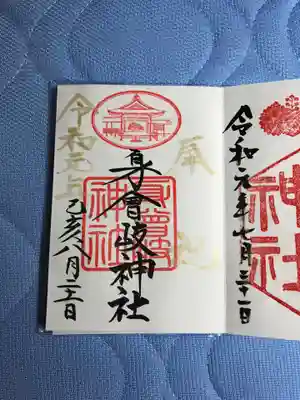 令和元年七月三十一日
神社
身曾岐神社
身曾岐神社
令和元年
己亥八月
日